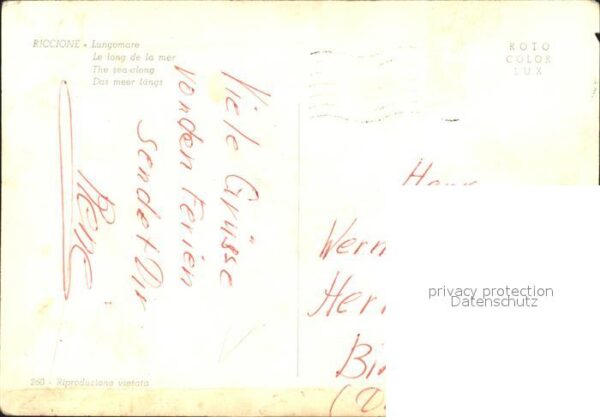 RICCIONE - Lungomare
Le long de la mer
The sea-along
Das meer längs
ROTO
COLOR
LUX
Viele Grüsse
von den Ferien
sendet Dir
Wern
Her
Bi
(D
privacy protection
Datenschutz
260 - Riproduzione vietata